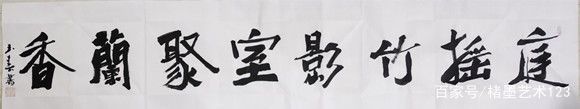 庭摇竹影室聚蘭香
百家号/楮墨艺术123